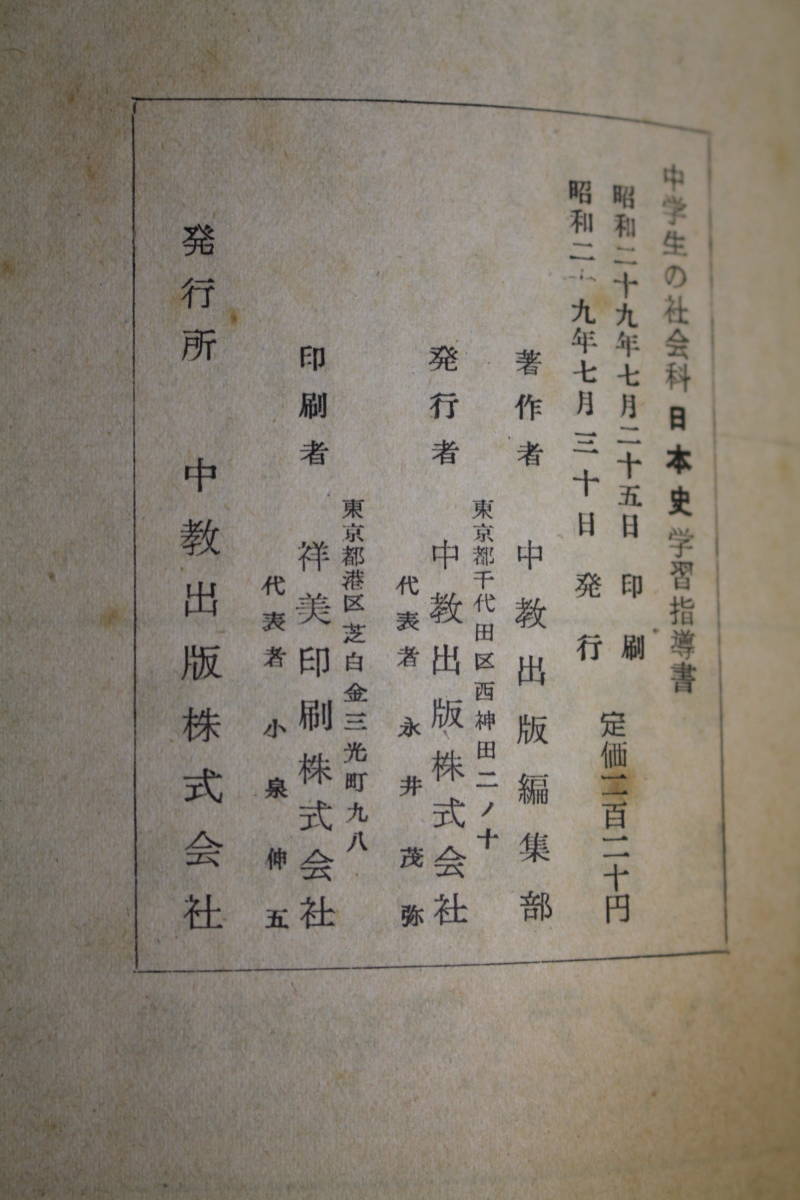 中学生の社会科日本史学習指導書
昭和二十九年七月二十五日 印刷
昭和二十九年七月三十日 発行
定価三百二十円
著作者 中教出版編集部
東京都千代田区西神田二ノ十
発行者 中教出版株式会社
代表者 永井茂弥
東京都港区芝白金三光町九八
印刷者 祥美印刷株式会社
代表者 小泉伸五
発行所 中教出版株式会社